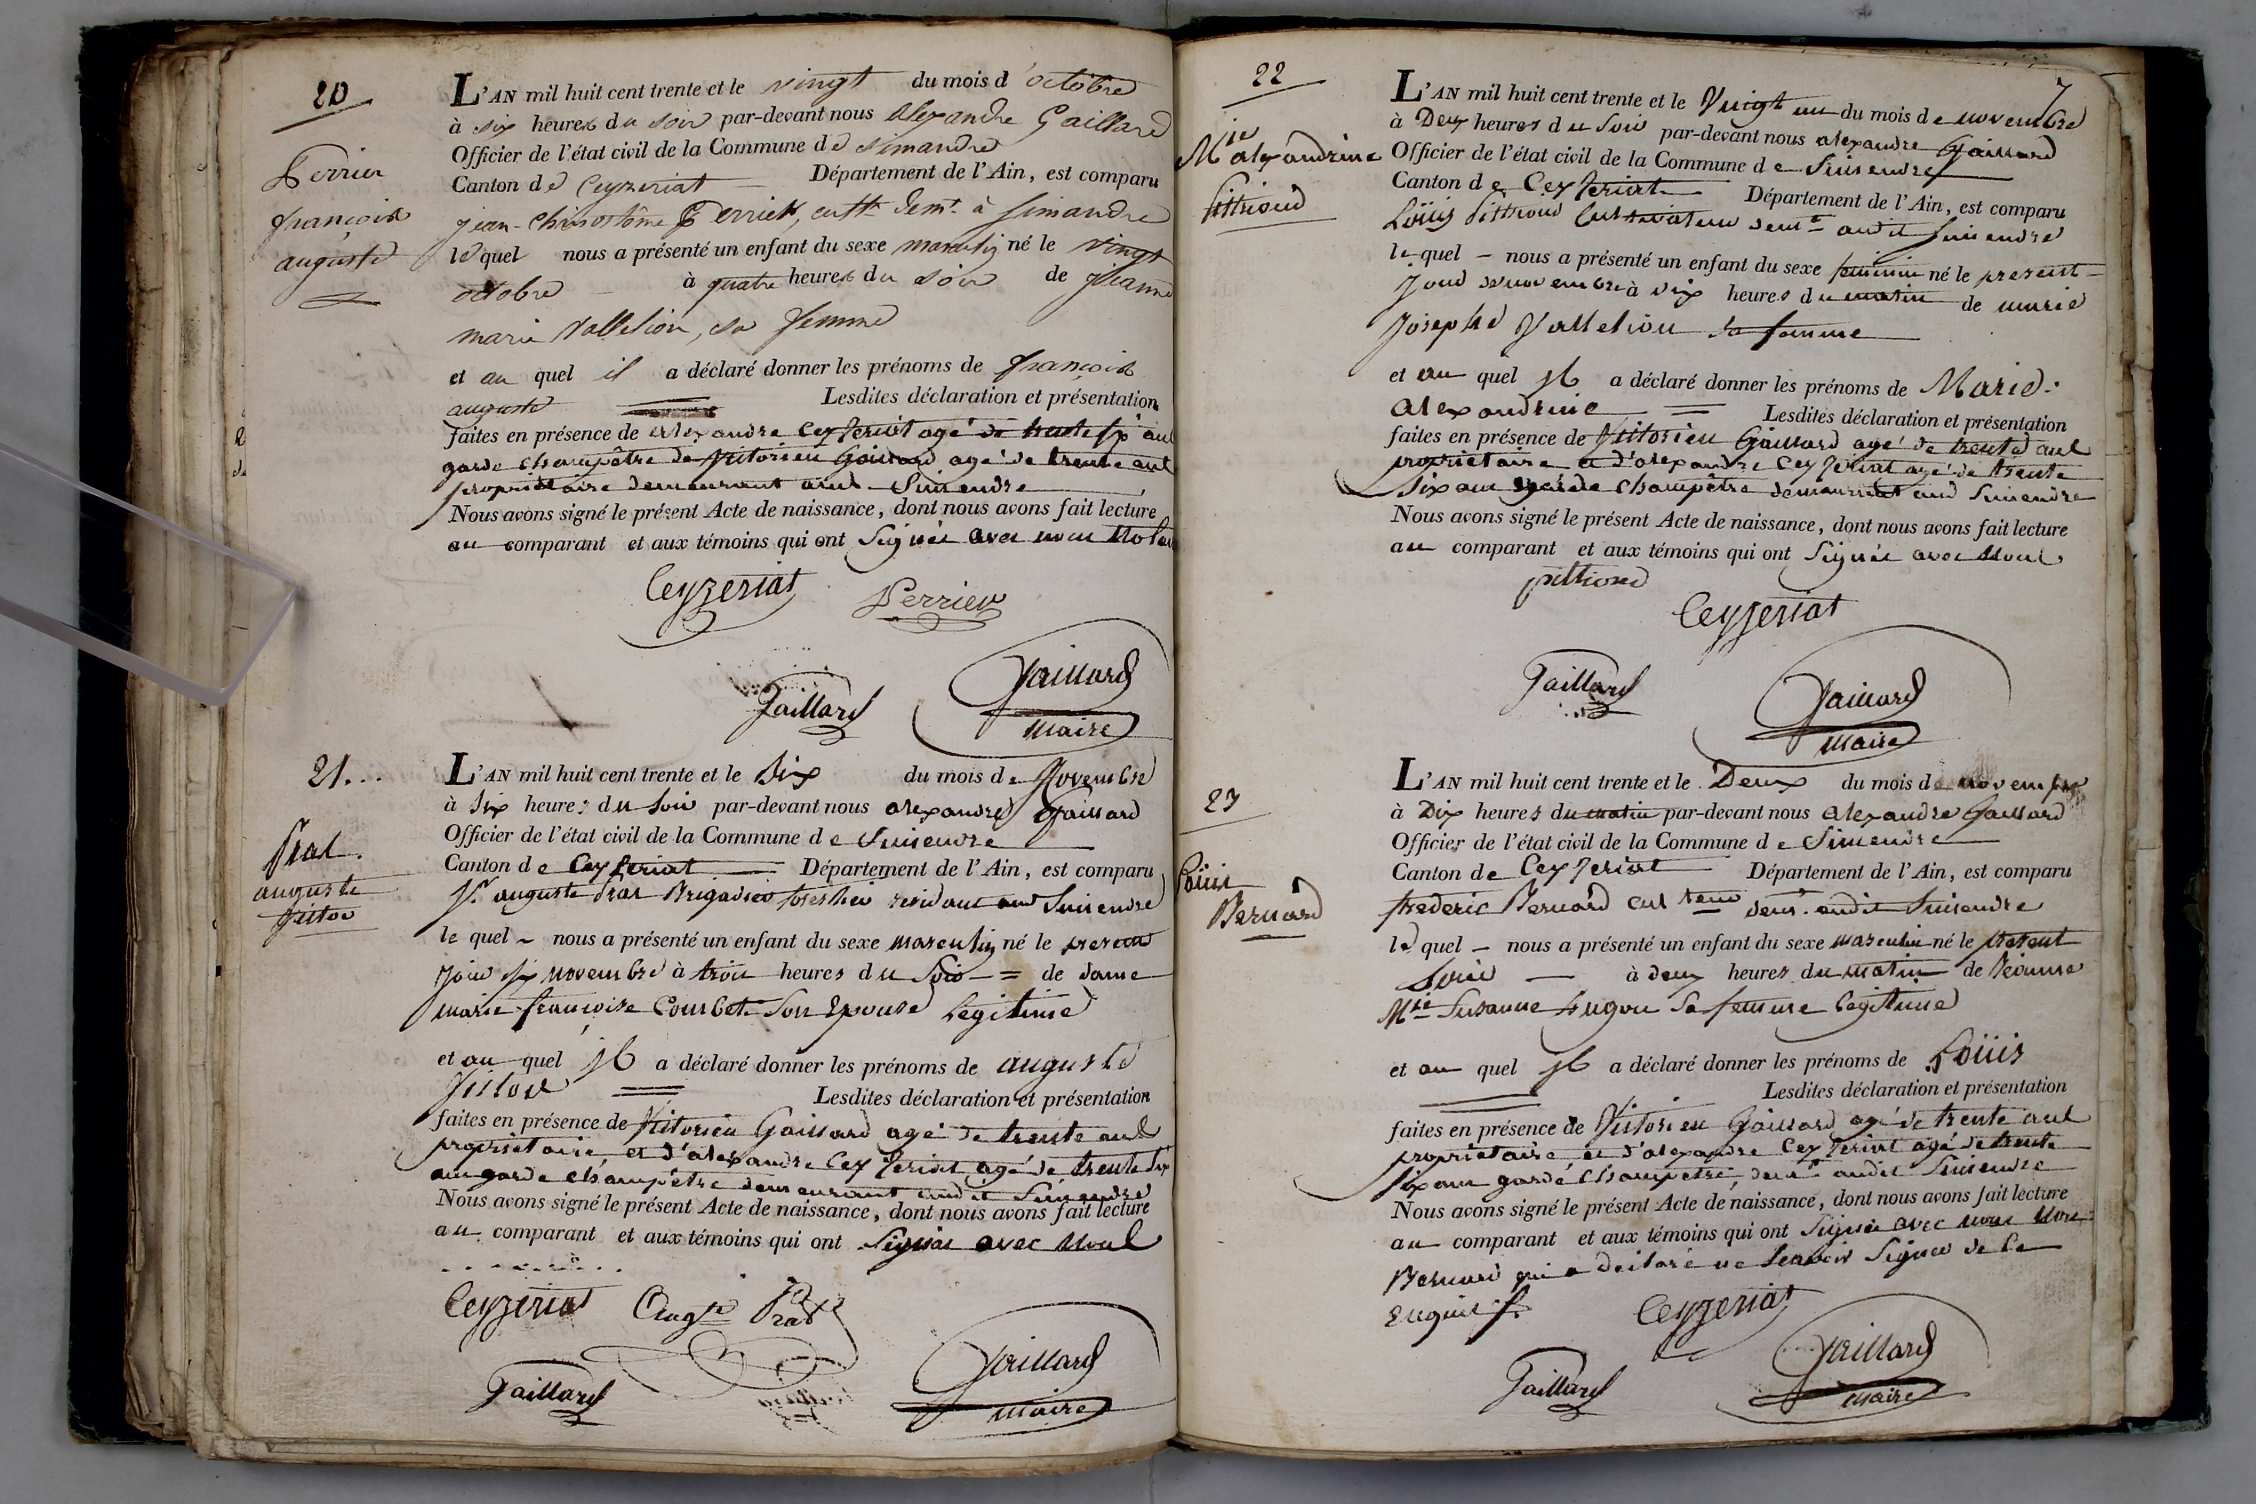 20
Perrier
françois
auguste
L'AN mil huit cent trente et le vingt du mois d'octobre
à six heures du soir par-devant nous Alexandre Gaillard
Officier de l'état civil de la Commune de Simandre
Canton de Ceyzeriat Département de l'Ain, est comparu
jean-Chrisostôme Perrier, cultr demt. à Simandre
lequel nous a présenté un enfant du sexe masculin né le vingt
octobre à quatre heures du soir de jeanne
marie Vallelion, sa femme
et au quel il a déclaré donner les prénoms de françois
auguste Lesdites déclaration et présentation
faites en présence de alexandre Ceyzeriat agé de trente six ans
garde champêtre de Victorien Gaillard agé de trente ans
propriétaire demeurant aud. Simendre
Nous avons signé le présent Acte de naissance, dont nous avons fait lecture
au comparant et aux témoins qui ont Signée avec nous
Ceyzeriat Perrier
Gaillard Gaillard
maire
21...
Prat.
auguste
Victor
L'AN mil huit cent trente et le Six du mois de Novembre
à Six heures du Soir par-devant nous alexandre Gaillard
Officier de l'état civil de la Commune de Simendre
Canton de Ceyzeriat Département de l'Ain, est comparu
Sr. auguste Prat Brigadier forestier residant aud Simendre
le quel nous a présenté un enfant du sexe masculin né le present
Jour six novembre à trois heures du Soir = de dame
marie françoise Courbet Son Epouse Legitime
et au quel il a déclaré donner les prénoms de auguste
Victor Lesdites déclaration et présentation
faites en présence de Victorien Gaillard agé de trente ans
propriétaire et d'alexandre Ceyzeriat agé de trente six
ans garde champêtre demeurant audit Simendre
Nous avons signé le présent Acte de naissance, dont nous avons fait lecture
au comparant et aux témoins qui ont Signée avec nous
Ceyzeriat Augte Prat
Gaillard Gaillard
maire
7
22
Mie
alexandrine
Pittioud
L'AN mil huit cent trente et le Vingt un du mois de novembre
à Deux heures du Soir par-devant nous alexandre Gaillard
Officier de l'état civil de la Commune de Simendre
Canton de Ceyzeriat Département de l'Ain, est comparu
Loüis Pittioud Cultivateur demt. audit Simendre
le quel nous a présenté un enfant du sexe feminin né le present
Jour de novembre à six heures du matin de marie
Josephe Vallelion sa femme
et au quel il a déclaré donner les prénoms de Marie-
alexandrine Lesdites déclaration et présentation
faites en présence de Victorien Gaillard agé de trente ans
propriétaire et d'alexandre Ceyzeriat agé de trente
six ans garde champêtre demeurant aud Simendre
Nous avons signé le présent Acte de naissance, dont nous avons fait lecture
au comparant et aux témoins qui ont Signée avec nous
pittioud
Ceyzeriat
Gaillard Gaillard
maire
23
Loüis
Bernard
L'AN mil huit cent trente et le Deux du mois de novembre
à Dix heures du matin par-devant nous alexandre Gaillard
Officier de l'état civil de la Commune de Simendre
Canton de Ceyzeriat Département de l'Ain, est comparu
frederic Bernard cultteur demt. audit Simendre
le quel nous a présenté un enfant du sexe masculin né le present
Jour à deux heures du matin de Jeanne
Mie Susanne Hugon Sa femme legitime
et au quel il a déclaré donner les prénoms de Loüis
Lesdites déclaration et présentation
faites en présence de Victorien Gaillard agé de trente ans
propriétaire et d'alexandre Ceyzeriat agé de trente
six ans garde champêtre, demt. audit Simendre
Nous avons signé le présent Acte de naissance, dont nous avons fait lecture
au comparant et aux témoins qui ont Signée avec nous Non
Bernard qui a declaré ne Scavoir Signer de ce
Enquis
Ceyzeriat
Gaillard Gaillard
maire